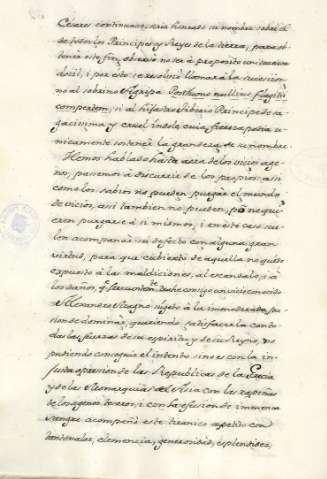 Cesares continuaos, seria honrado su nombre sobre el
de todos los Principes y Reyes de la tierra, para ob-
tener este fin, observò no ser à proposito un
docil, i por esto se resolviò llamar à la succession
no al sobrino Agripa Posthumo nullius flagitij
compertum; si al hijastro Tiberio Principe de sa-
gacissima y cruel indole cuia fiereza podia u-
nicamente sostener la grandeza de su nombre.
Hemos hablado hasta aora de los vicios age-
nos, passemos à discurrir de los propios; assi
como los sabios no pueden purgar el mundo
de vicios, assi tambien no pueden, pô no quie-
ren purgarse à si mismos, i en este caso sue-
len acompañar su defecto con alguna gran
virtud, para que cubierto de aquella no quede
expuesto à las maldiciones, al escandalo, i à
los daños, q̃
Alexandro Magno sugeto à la immoderada pas-
sion de dominar, queriendo satisfacerla con to-
das las fuerzas de su espiritu y de su Reyno, no
pudiendo conseguir el intento sino es con la in-
justa opression de las Republicas de la Grecia
y de las Monarquias del Asia con las rapiñas
de los agenos tesoros, i con la efusion de immensa
sangre acompañò este tiranico apetito con
clemencia, generosidad, esplendidez,